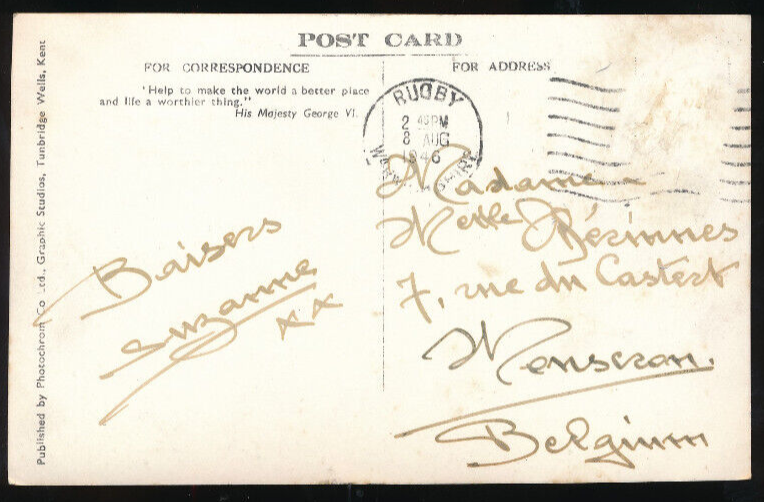 POST CARD
FOR CORRESPONDENCE
FOR ADDRESS
"Help to make the world a better place
and life a worthier thing."
His Majesty George VI.
RUGBY
2 45PM
8 AUG
1946
WARWICKSHIRE
Madame
Melle Dérinnes
7, rue du Castert
Mouscron.
Belgium
Baisers
Suzanne
x x
Published by Photochrom Co Ltd., Graphic Studios, Tunbridge Wells, Kent